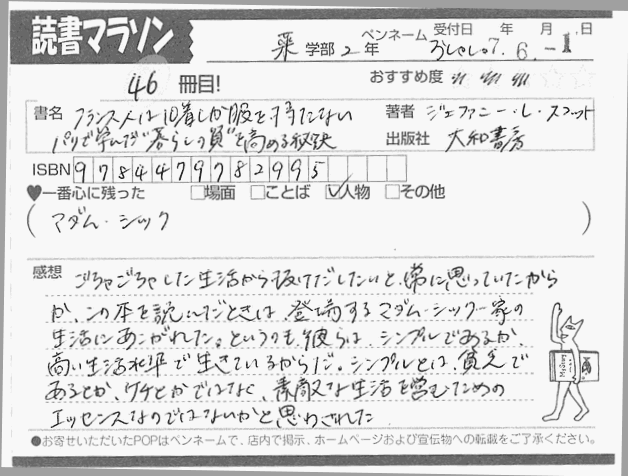 読書マラソン
学部2年
ペンネーム
受付日 年 月 日
7. 6. -1
46 冊目!
おすすめ度
書名 フランス人は10着しか服を持たない
パリで学んだ“暮らしの質”を高める秘訣
著者 ジェファニー・L・スコット
出版社 大和書房
ISBN 9784479782995
♥一番心に残った □場面 □ことば ☑人物 □その他
(マダム・シック)
感想 ごちゃごちゃした生活から抜けだしたいと、常に思っていたから
か、この本を読んだときは、登場するマダム・シック一家の
生活にあこがれた。というのも、彼らは、シンプルであるが、
高い生活水準で生きているからだ。シンプルとは、貧乏で
あるとか、ケチとかではなく、素敵な生活を営むための
エッセンスなのではないかと思わされた
●お寄せいただいたPOPはペンネームで、店内で掲示、ホームページおよび宣伝物への転載をご了承ください。